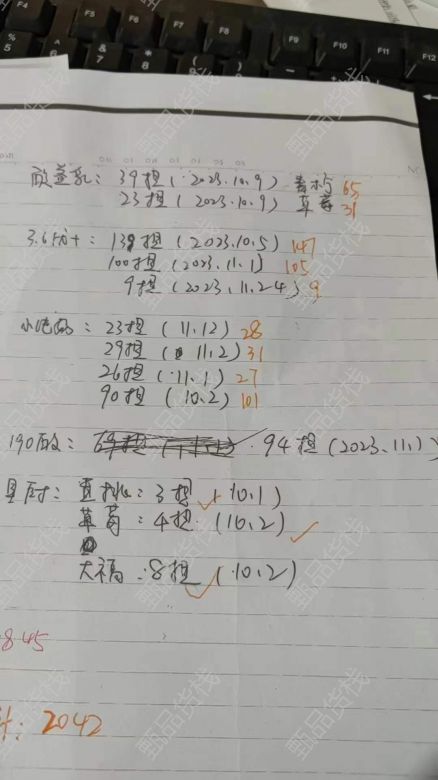 F6
F7
F8
F9
F10
F11
F12
%
5
6
&
7
*
8
39提(2023.10.9) 65
23提(2023.10.9) 草莓 31
3.6 : 139提(2023.10.5) 147
100提(2023.11.1) 105
9提(2023.11.24) 9
23提(11.12) 28
29提(11.2) 31
26提(11.1) 27
90提(10.2) 101
190酸: 94提(2023.11.1)
3提(10.1)
草莓: 4提(10.2)
大福: 8提(10.2)
845
计: 2042
甄品货栈